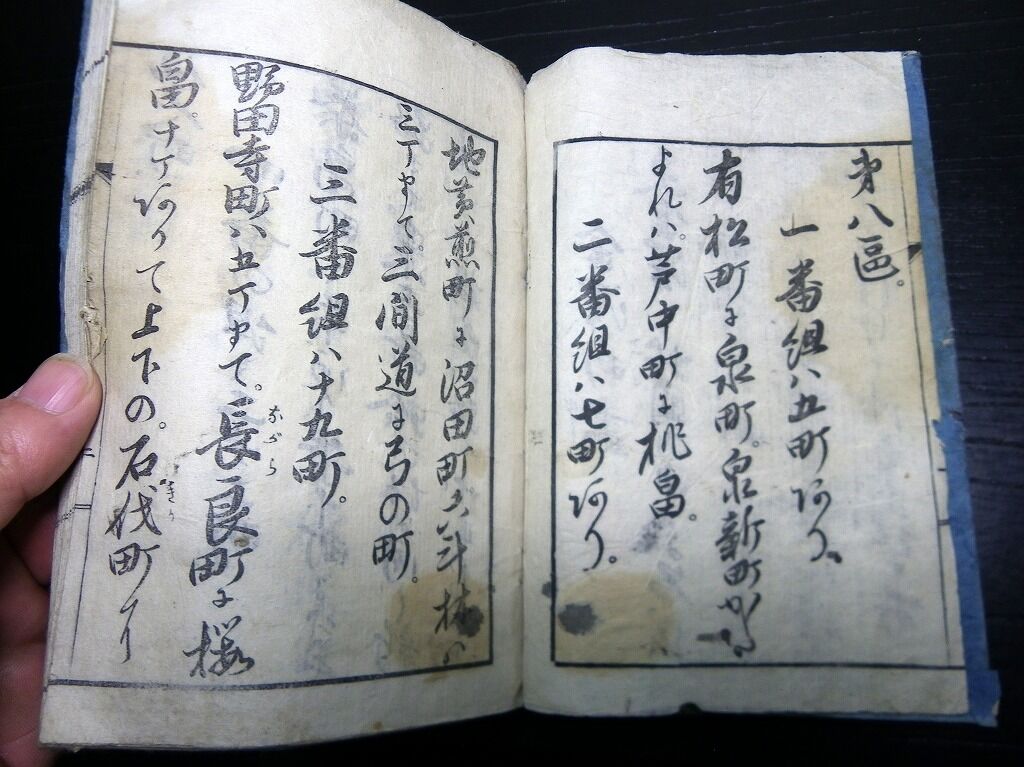 第八區。
一番組ハ五町あり、
有松町に泉町。泉新町
よれハ。芦中町に桃畠。
二番組ハ七町あり。
地黄煎町に沼田町。六斗林ハ
三丁まて。三間道に弓の町。
三番組ハ十九町。
野田寺町ハ五丁まて。長良町に桜
ながら
畠。十丁ありて上下の。石伐町
きり